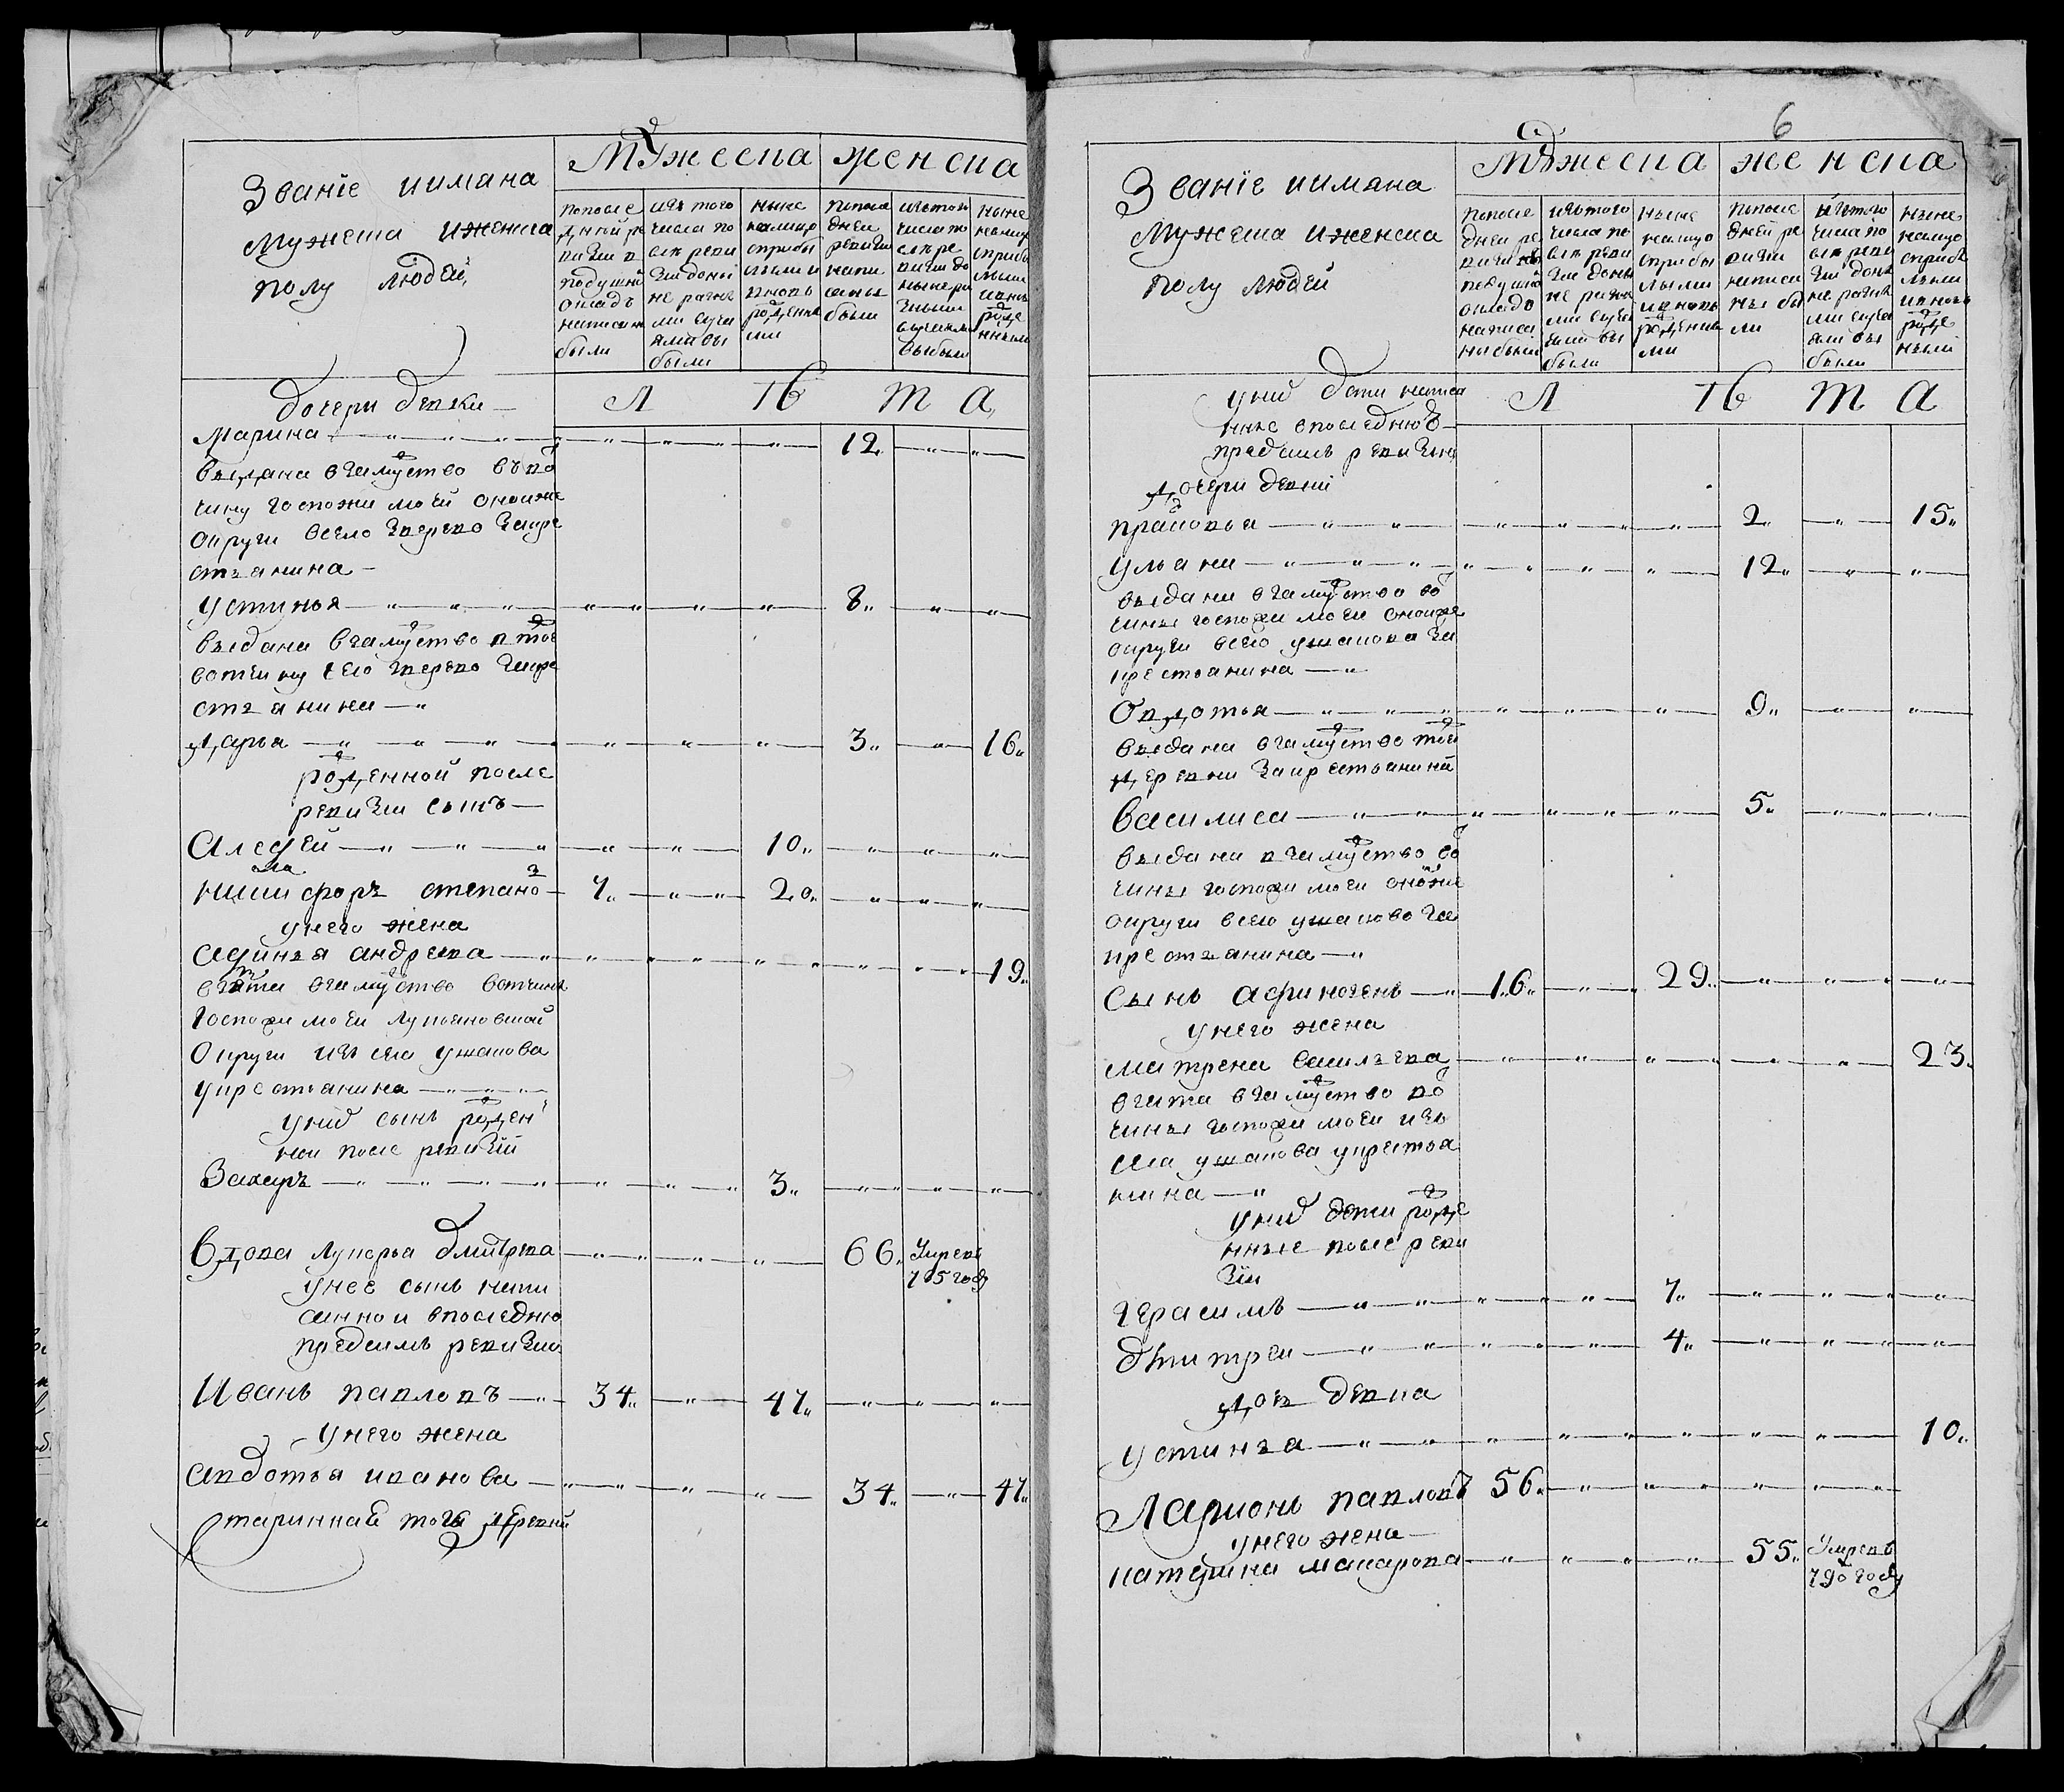 Званїе иимяна
мужеска иженска
полу людей,
Мужеска женска
попосле
дней ре
визии в
подушнй
окладъ
написан
были
изъ того
числа по
сле реви
зии доны
не разны
ми случа
ями вы
были
ныне
налицо
сприбы
лыми и
вновь
рожденны
ми
попосле
дней
ревизии
напи
саны
были
изътого
числа по
сле ре
визии до
ныне ра
зными
случаями
выбыли
ныне
налицо
сприбы
лыми
ивновь
рожде
нными
Л Ѣ Т А
дочери девки
марина 12
выдана взамуство въво
чину госпожи моей оноиже
округи всело зверево закре
стьянина
устинья 8
выдана взамуство втое
вотчину село зверево закре
стьянина
дарья 3 16
рожденной после
ревизии сынъ
Алефей 10
никифоръ степано 7 20
унего жена
афинья андреева 19
взята взамуство вотчины
госпожи моеи лукояновской
округи изъ села ушакова
укрестьянина
унихъ сынъ рожден
нои после ревизїи
Захаръ 3
вдова лукерья дмитрева 66 умре въ
795 году
унее сынъ напи
санной впоследнюю
предсимъ ревизию
Иванъ павловъ 34 47
унего жена
авдотья иванова 34 47
старинная тогоже деревни
6
Званїе иимяна
мужеска иженска
полу людей
Мужеска женска
попосле
дней ре
визии въ
подушной
окладъ
написа
ны были
изътого
числа по
сле реви
зии доны
не разны
ми случа
ями вы
были
ныне
налицо
сприбы
лыми
ивновь
рожденны
ми
попосле
дней ре
визии
написа
ны бы
ли
изътого
числа по
сле реви
зии доны
не разны
ми случа
ями вы
были
ныне
налицо
сприбы
лыми
ивновь
рожде
нными
Л Ѣ Т А
унихъ дети написа
нные впоследнюю
предсимъ ревизию
дочери девки
прасковья 2 15
ульяна 12
выдана взамуство во
чины госпожи моеи оноиже
округи всело ушакова за
крестьянина
Овдотья 9
выдана взамуство тои
деревни закрестьянина
василиса 5
выдана взамуство во
чины госпожи моеи оноиже
округи всело ушаково за
крестьянина
сынъ афиногенъ 16 29
унего жена
матрена васильева 23
взята взамуство во
чины госпожи моеи изъ
села ушакова укрестья
нина
унихъ дети рожде
нные после реви
зїи
герасимъ 7
дмитреи 4
дочь девка
устинья 10
Ларионъ павловъ 56
унего жена
катерина макарова 55 умре въ
790 году